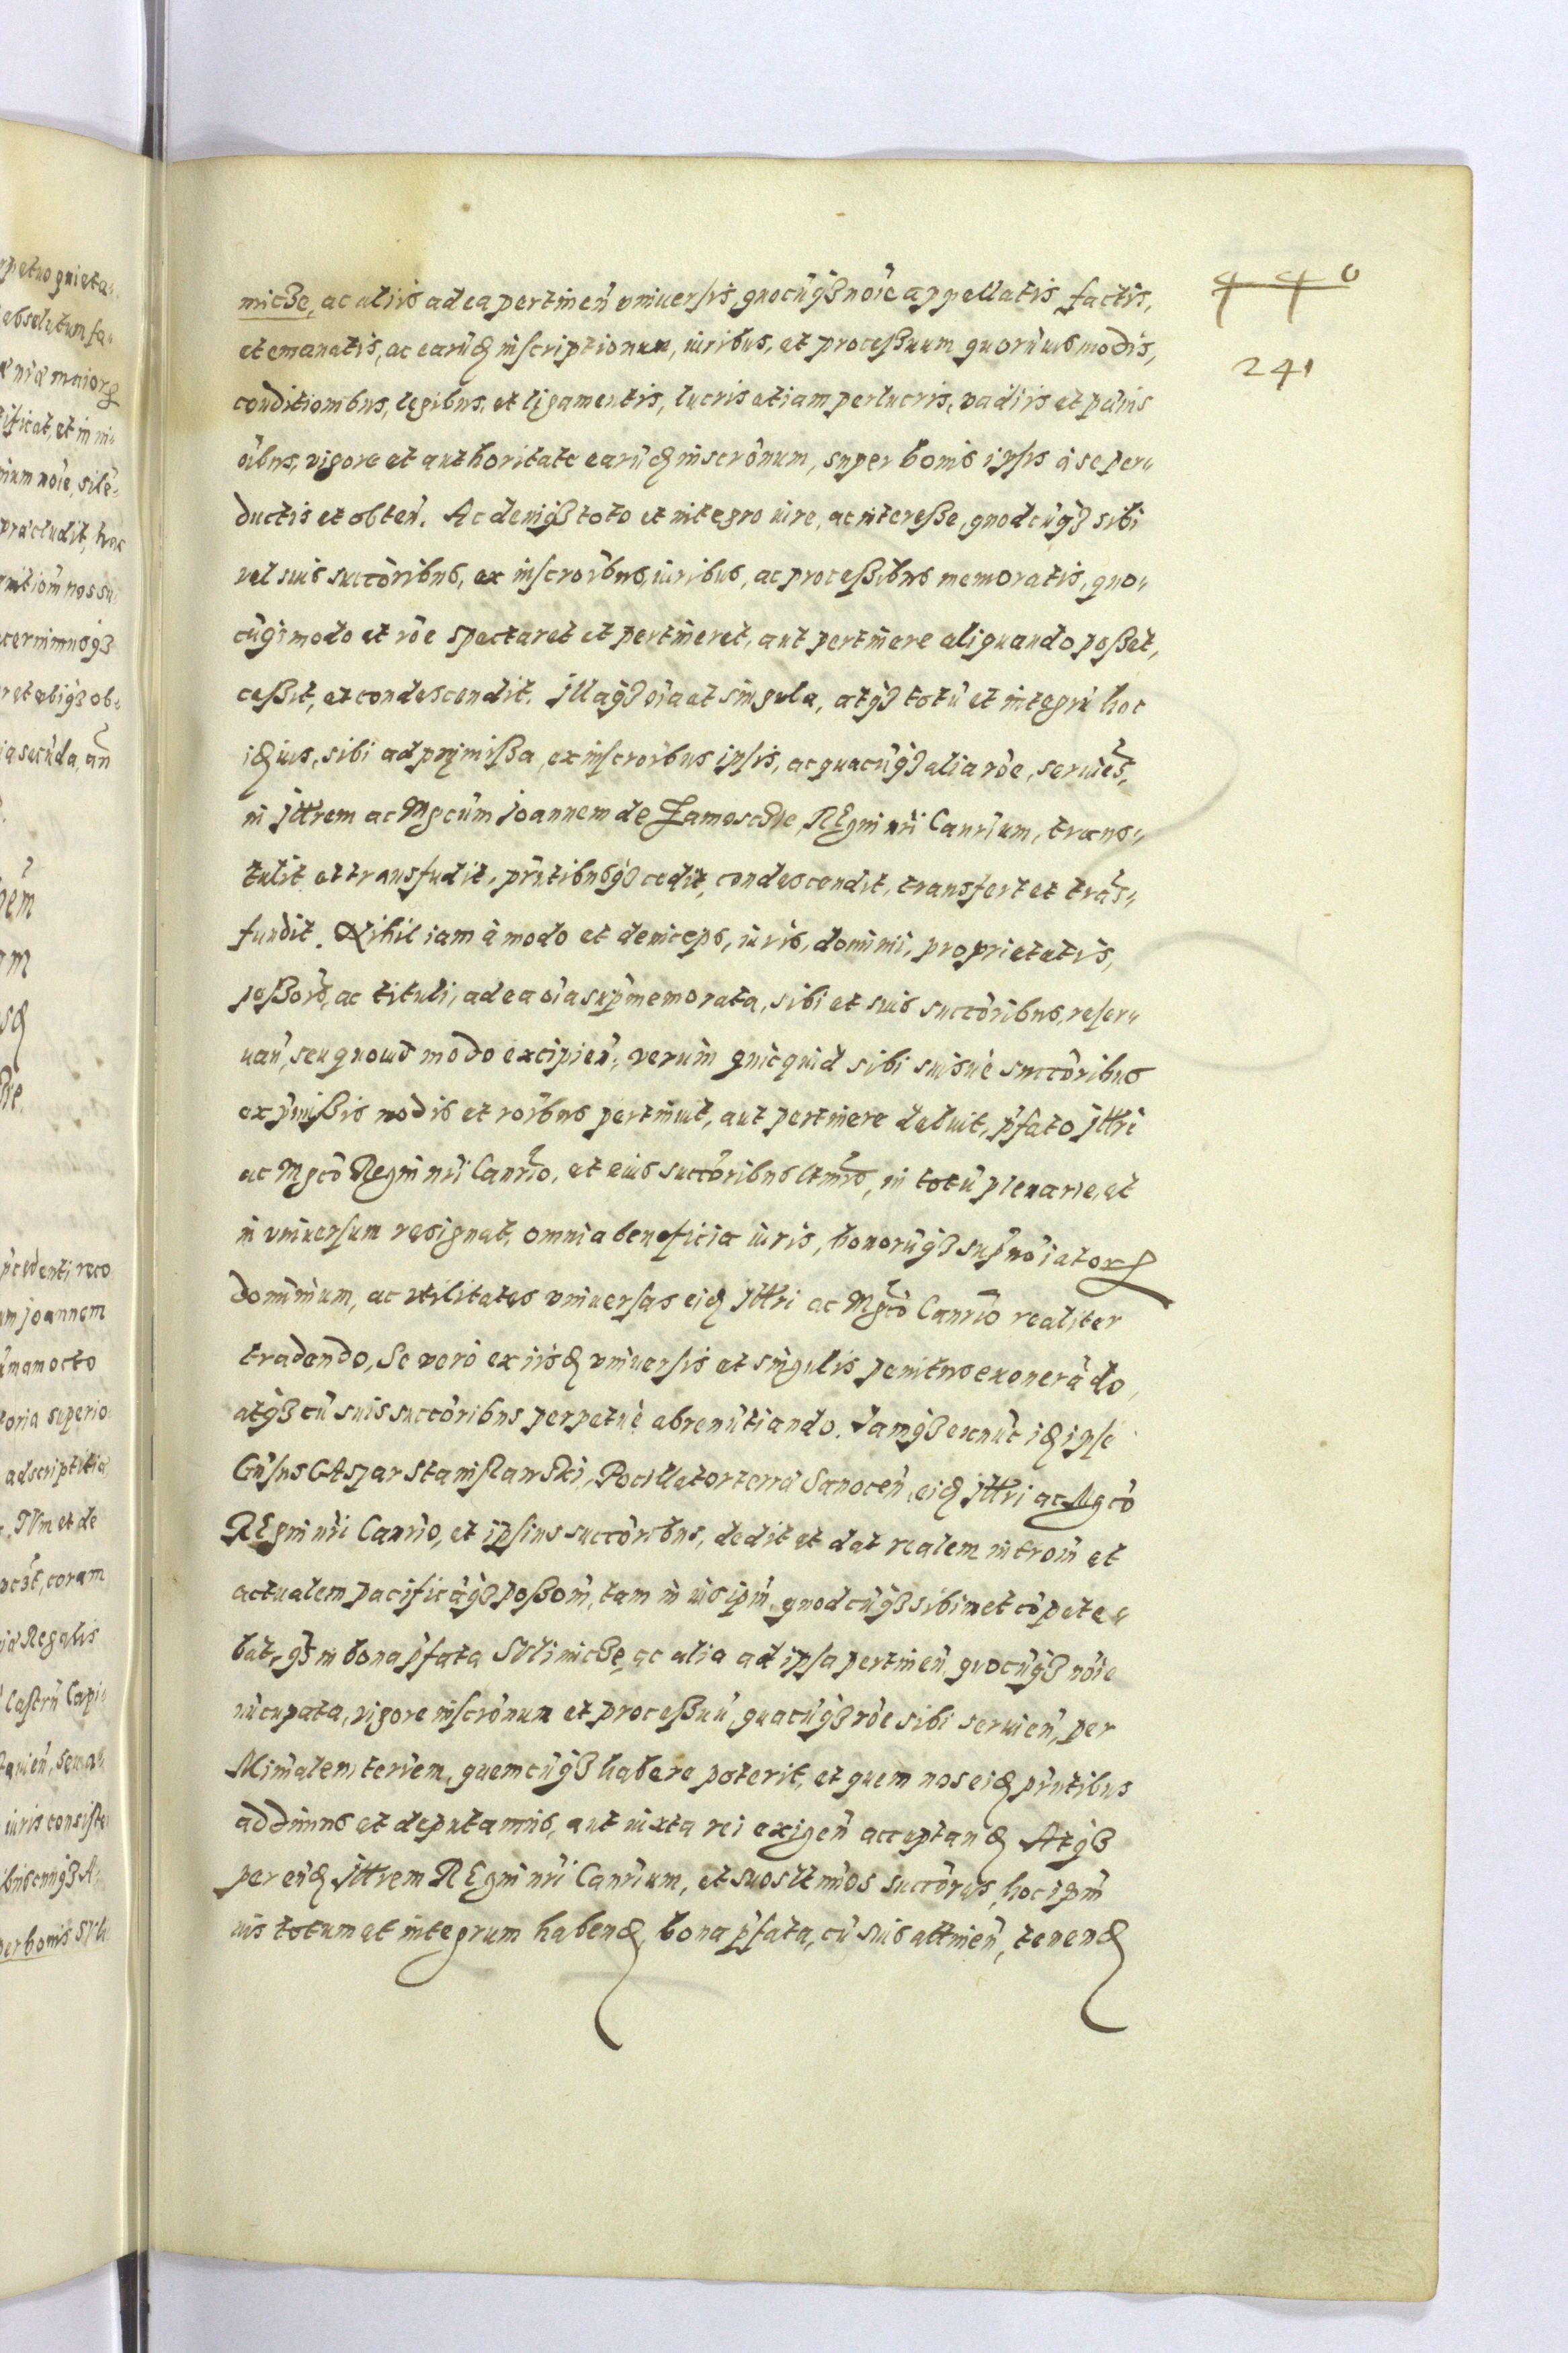 440
241
micze, ac aliis ad ea pertineñ vniuersis, quocũqȝ noĩe appellatis factis,
et emanatis, ac earũd inscriptionum, iuribus, et processuum quorũuis modis,
conditionibus, legibus, et ligamentis, lucris etiam perlucris, vadiis et pœnis
oĩbus, vigore et authoritate earũd inscrõnum, super bonis ipsis à se per„
ductis et obteñ. Ac deniqȝ toto et integro iure, ac interesse, quodcũqȝ sibi
vel suis succõribus, ex inscroĩbus, iuribus, ac processibus memoratis, quo„
cũqȝ modo et rõe spectaret et pertineret, aut pertinere aliquando posset,
cessit, et condescendit. Illaqȝ oĩa et singula, atqȝ totũ et integrũ hoc
id ius, sibi ad præmissa, ex inscroĩbus ipsis, ac quacũqȝ alia rõe, seruieñs,
in Jllrem ac Mgcũm Joannem de Zamoscie, REgni nr̃i Canr̃ium, trans„
tulit et transfudit, pñtibusqȝ cedit, condescendit, transfert et trãs„
fundit. Nihil iam à modo et deinceps, iuris, dominii, proprietatis,
possoris, ac tituli, ad ea oĩa sup̃memorata, sibi et suis succõribus, reser„
uañ, seu quouis modo excipieñ, verum quicquid sibi suisuè succõribus
ex p̃missis modis et roĩbus pertinuit, aut pertinere debuit, p̃fato Jllri
ac Mgcõ Regni nr̃i Canr̃io, et eius succõribus ltm̃is, in totũ plenarie, et
in vniuersum resignat, omnia beneficia iuris, bonorũqȝ sup̃noĩatorꝝ
dominium, ac vtilitates vniuersas eid Jllri ac Mgcõ Canr̃io realiter
tradendo, Se verò ex iisd vniuersis et singulis penitus exonerãdo,
atqȝ cũ suis succõribus perpetuè abrenũtiando. Iamqȝ exnũc id ipse
Gñsus CAspar Stanislawski, Pocillator terræ Sanoceñ, eid Jllri ac Mgcõ
REgni nr̃i Canr̃io, et ipsius succõribus, dedit et dat realem introm̃ et
actualem pacificãqȝ possom̃, tam in ius ip̃m, quodcũqȝ sibimet cõpete„
bat, qȝ in bona p̃fata Sulimicze, ac alia ad ipsa pertineñ quocũqȝ nõie
nũcupata, vigore inscrõnum et processuũ, quacũqȝ rõe sibi seruieñ, per
Minr̃alem terr̃em, quemcũqȝ habere poterit, et quem nos eid pr̃ntibus
addimus et deputamus, aut iuxta rei exigeñ acceptand. Atqȝ
per eũd Jllrem REgni nr̃i Canr̃ium, et suos ltm̃os succõres, hoc ip̃m
ius totum et integrum habend, bona p̃fata, cũ suis attineñ, tenend